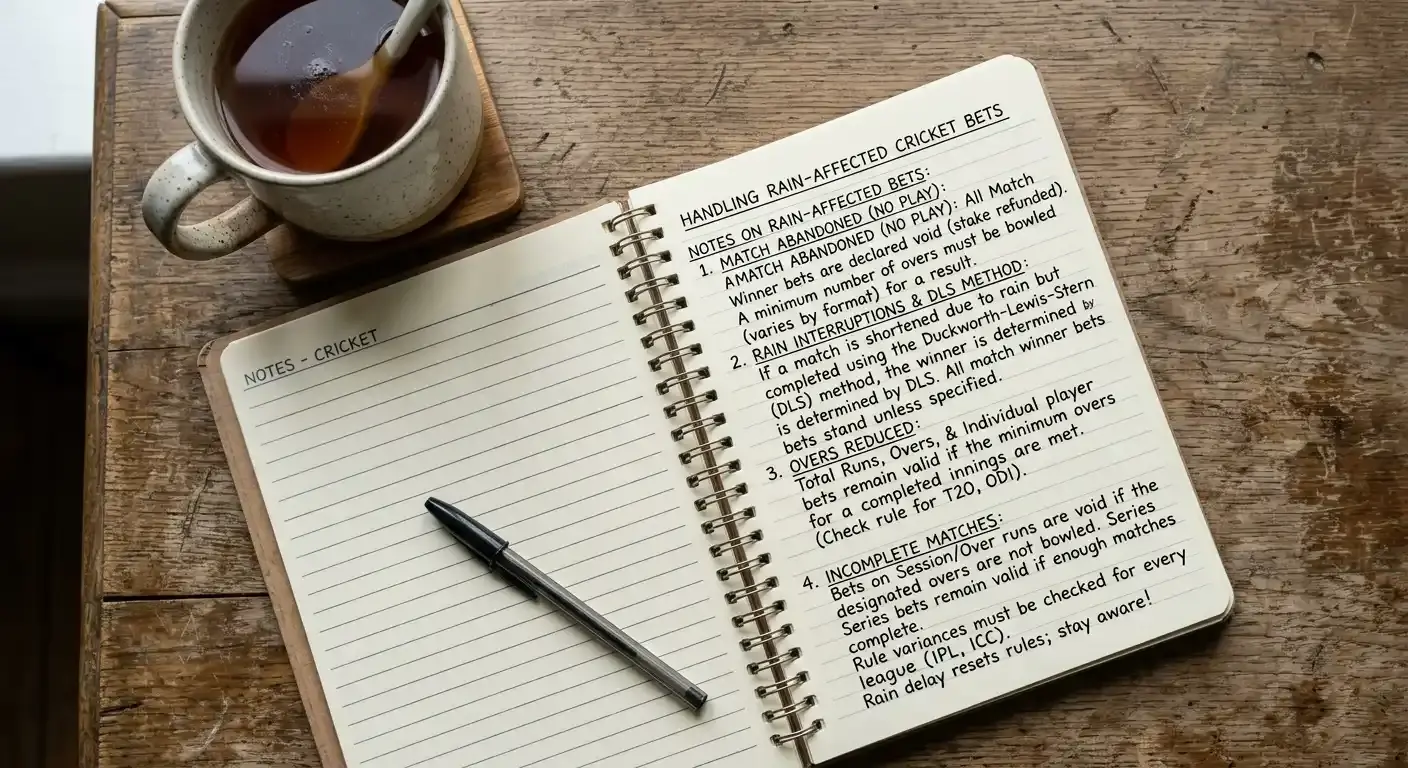 NOTES - CRICKET
HANDLING RAIN-AFFECTED CRICKET BETS
NOTES ON RAIN-AFFECTED BETS:
1. MATCH ABANDONED (NO PLAY):
AMATCH ABANDONED (NO PLAY): All Match
Winner bets are declared void (stake refunded).
A minimum number of overs must be bowled
(varies by format) for a result.
2. RAIN INTERRUPTIONS & DLS METHOD:
If a match is shortened due to rain but
completed using the Duckworth-Lewis-Stern
(DLS) method, the winner is determined by
is determined by DLS. All match winner bets
bets stand unless specified.
3. OVERS REDUCED:
Total Runs, Overs, & Individual player
bets remain valid if the minimum overs
for a completed innings are met.
(Check rule for T20, ODI).
4. INCOMPLETE MATCHES:
Bets on Session/Over runs are void if the
designated overs are not bowled. Series
Series bets remain valid if enough matches
complete.
Rule variances must be checked for every
league (IPL, ICC).
Rain delay resets rules; stay aware!